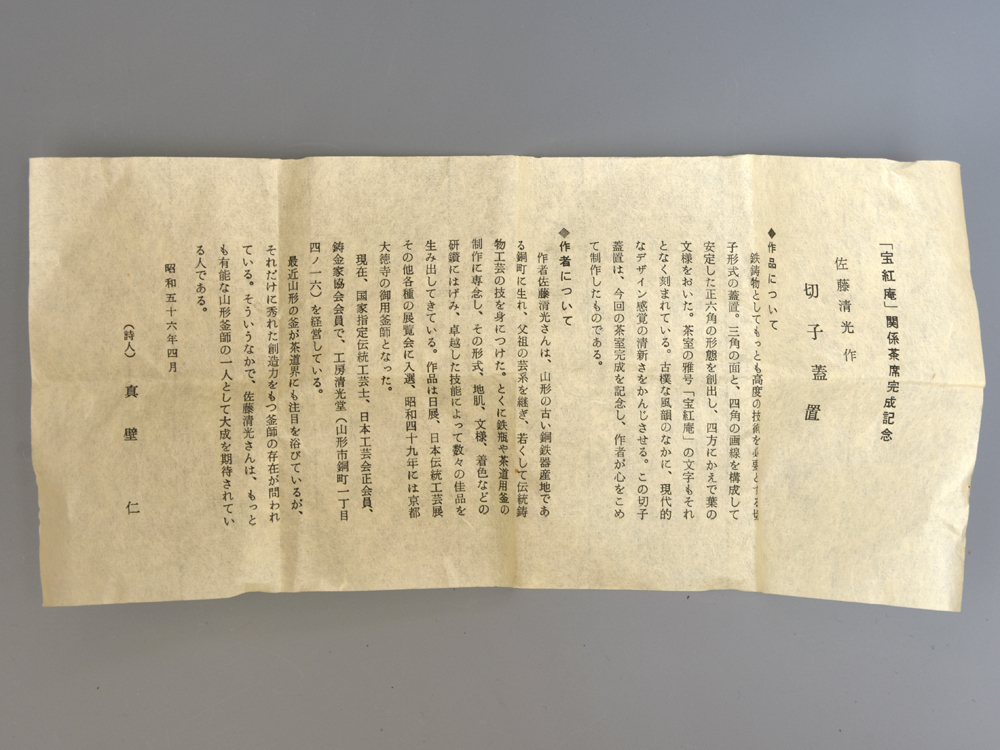 「宝紅庵」関係茶席完成記念
佐藤清光作
切子蓋置
◆作品について
鉄鋳物としてもっとも高度の技術を必要とする切
子形式の蓋置。三角の面と、四角の画線を構成して
安定した正六角の形態を創出し、四方にかえで葉の
文様をおいた。茶室の雅号「宝紅庵」の文字もそれ
となく刻まれている。古樸な風韻のなかに、現代的
なデザイン感覚の清新さをかんじさせる。この切子
蓋置は、今回の茶室完成を記念し、作者が心をこめ
て制作したものである。
◆作者について
作者佐藤清光さんは、山形の古い銅鉄器産地であ
る銅町に生れ、父祖の芸系を継ぎ、若くして伝統鋳
物工芸の技を身につけた。とくに鉄瓶や茶道用釜の
制作に専念し、その形式、地肌、文様、着色などの
研鑽にはげみ、卓越した技能によって数々の佳品を
生み出してきている。作品は日展、日本伝統工芸展
その他各種の展覧会に入選、昭和四十九年には京都
大徳寺の御用釜師となった。
現在、国家指定伝統工芸士、日本工芸会正会員、
鋳金家協会会員で、工房清光堂(山形市銅町一丁目
四ノ一六)を経営している。
最近山形の釜が茶道界にも注目を浴びているが、
それだけに秀れた創造力をもつ釜師の存在が問われ
ている。そういうなかで、佐藤清光さんは、もっと
も有能な山形釜師の一人として大成を期待されてい
る人である。
昭和五十六年四月
(詩人)真壁仁